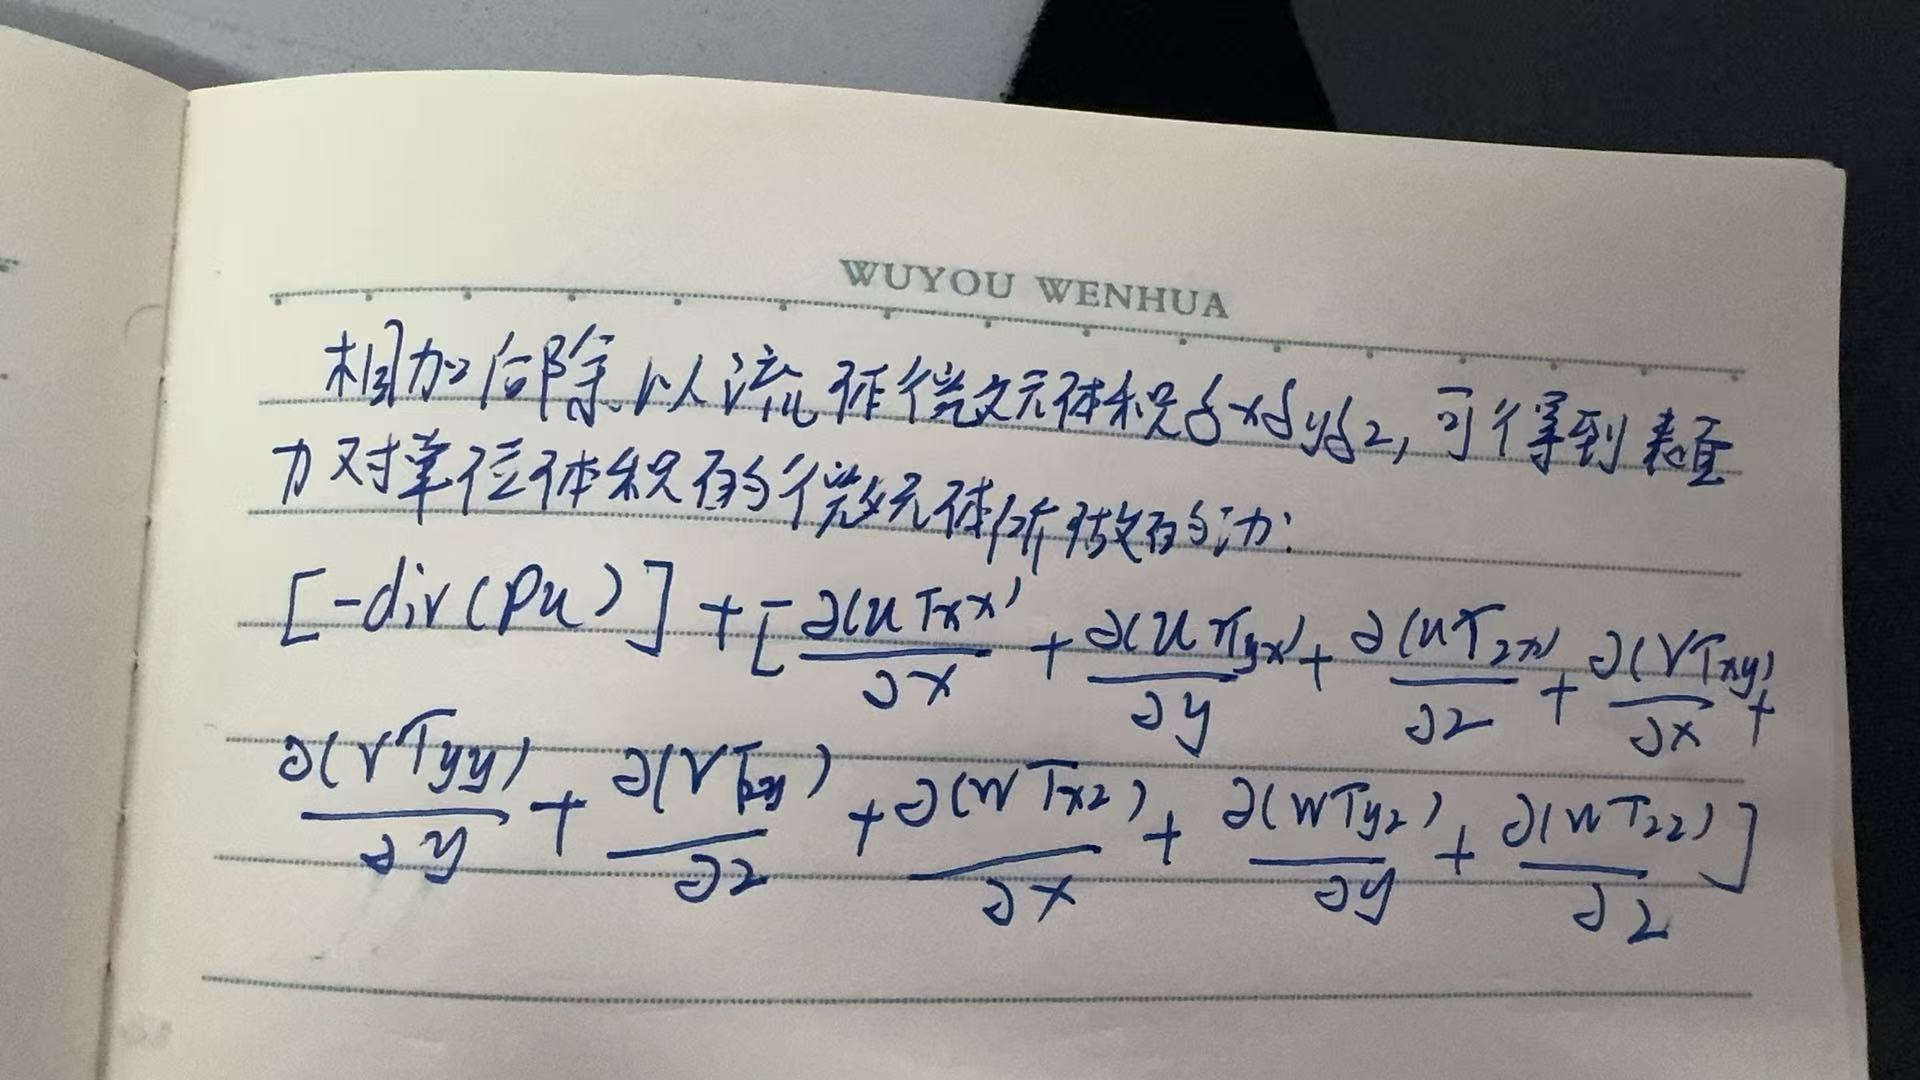 WUYOU WENHUA
相加后除以流体微元体积δxδyδz,可得到表面
力对单位体积的微元体所做的功:
[-div(pu)] + [∂(uτxx)/∂x + ∂(uτyx)/∂y + ∂(uτzx)/∂z + ∂(vτxy)/∂x +
∂(vτyy)/∂y + ∂(vτzy)/∂z + ∂(wτxz)/∂x + ∂(wτyz)/∂y + ∂(wτzz)/∂z]